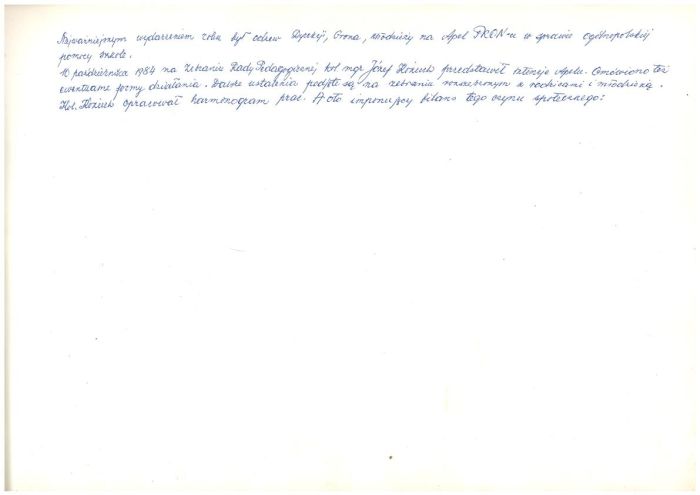 Najważniejszym wydarzeniem roku był odzew Dyrekcji, Grona, młodzieży na Apel PRON-u w sprawie ogólnopolskiej
pomocy szkole.
10 października 1984 na zebraniu Rady Pedagogicznej kol. mgr Józef przedstawił intencje Apelu. Omówiono też
ewentualne formy działania. Dalsze ustalenia podjęto są na zebraniu z rodzicami i młodzieżą.
Kol. opracował harmonogram prac. A oto imponujący bilans tego czynu społecznego: